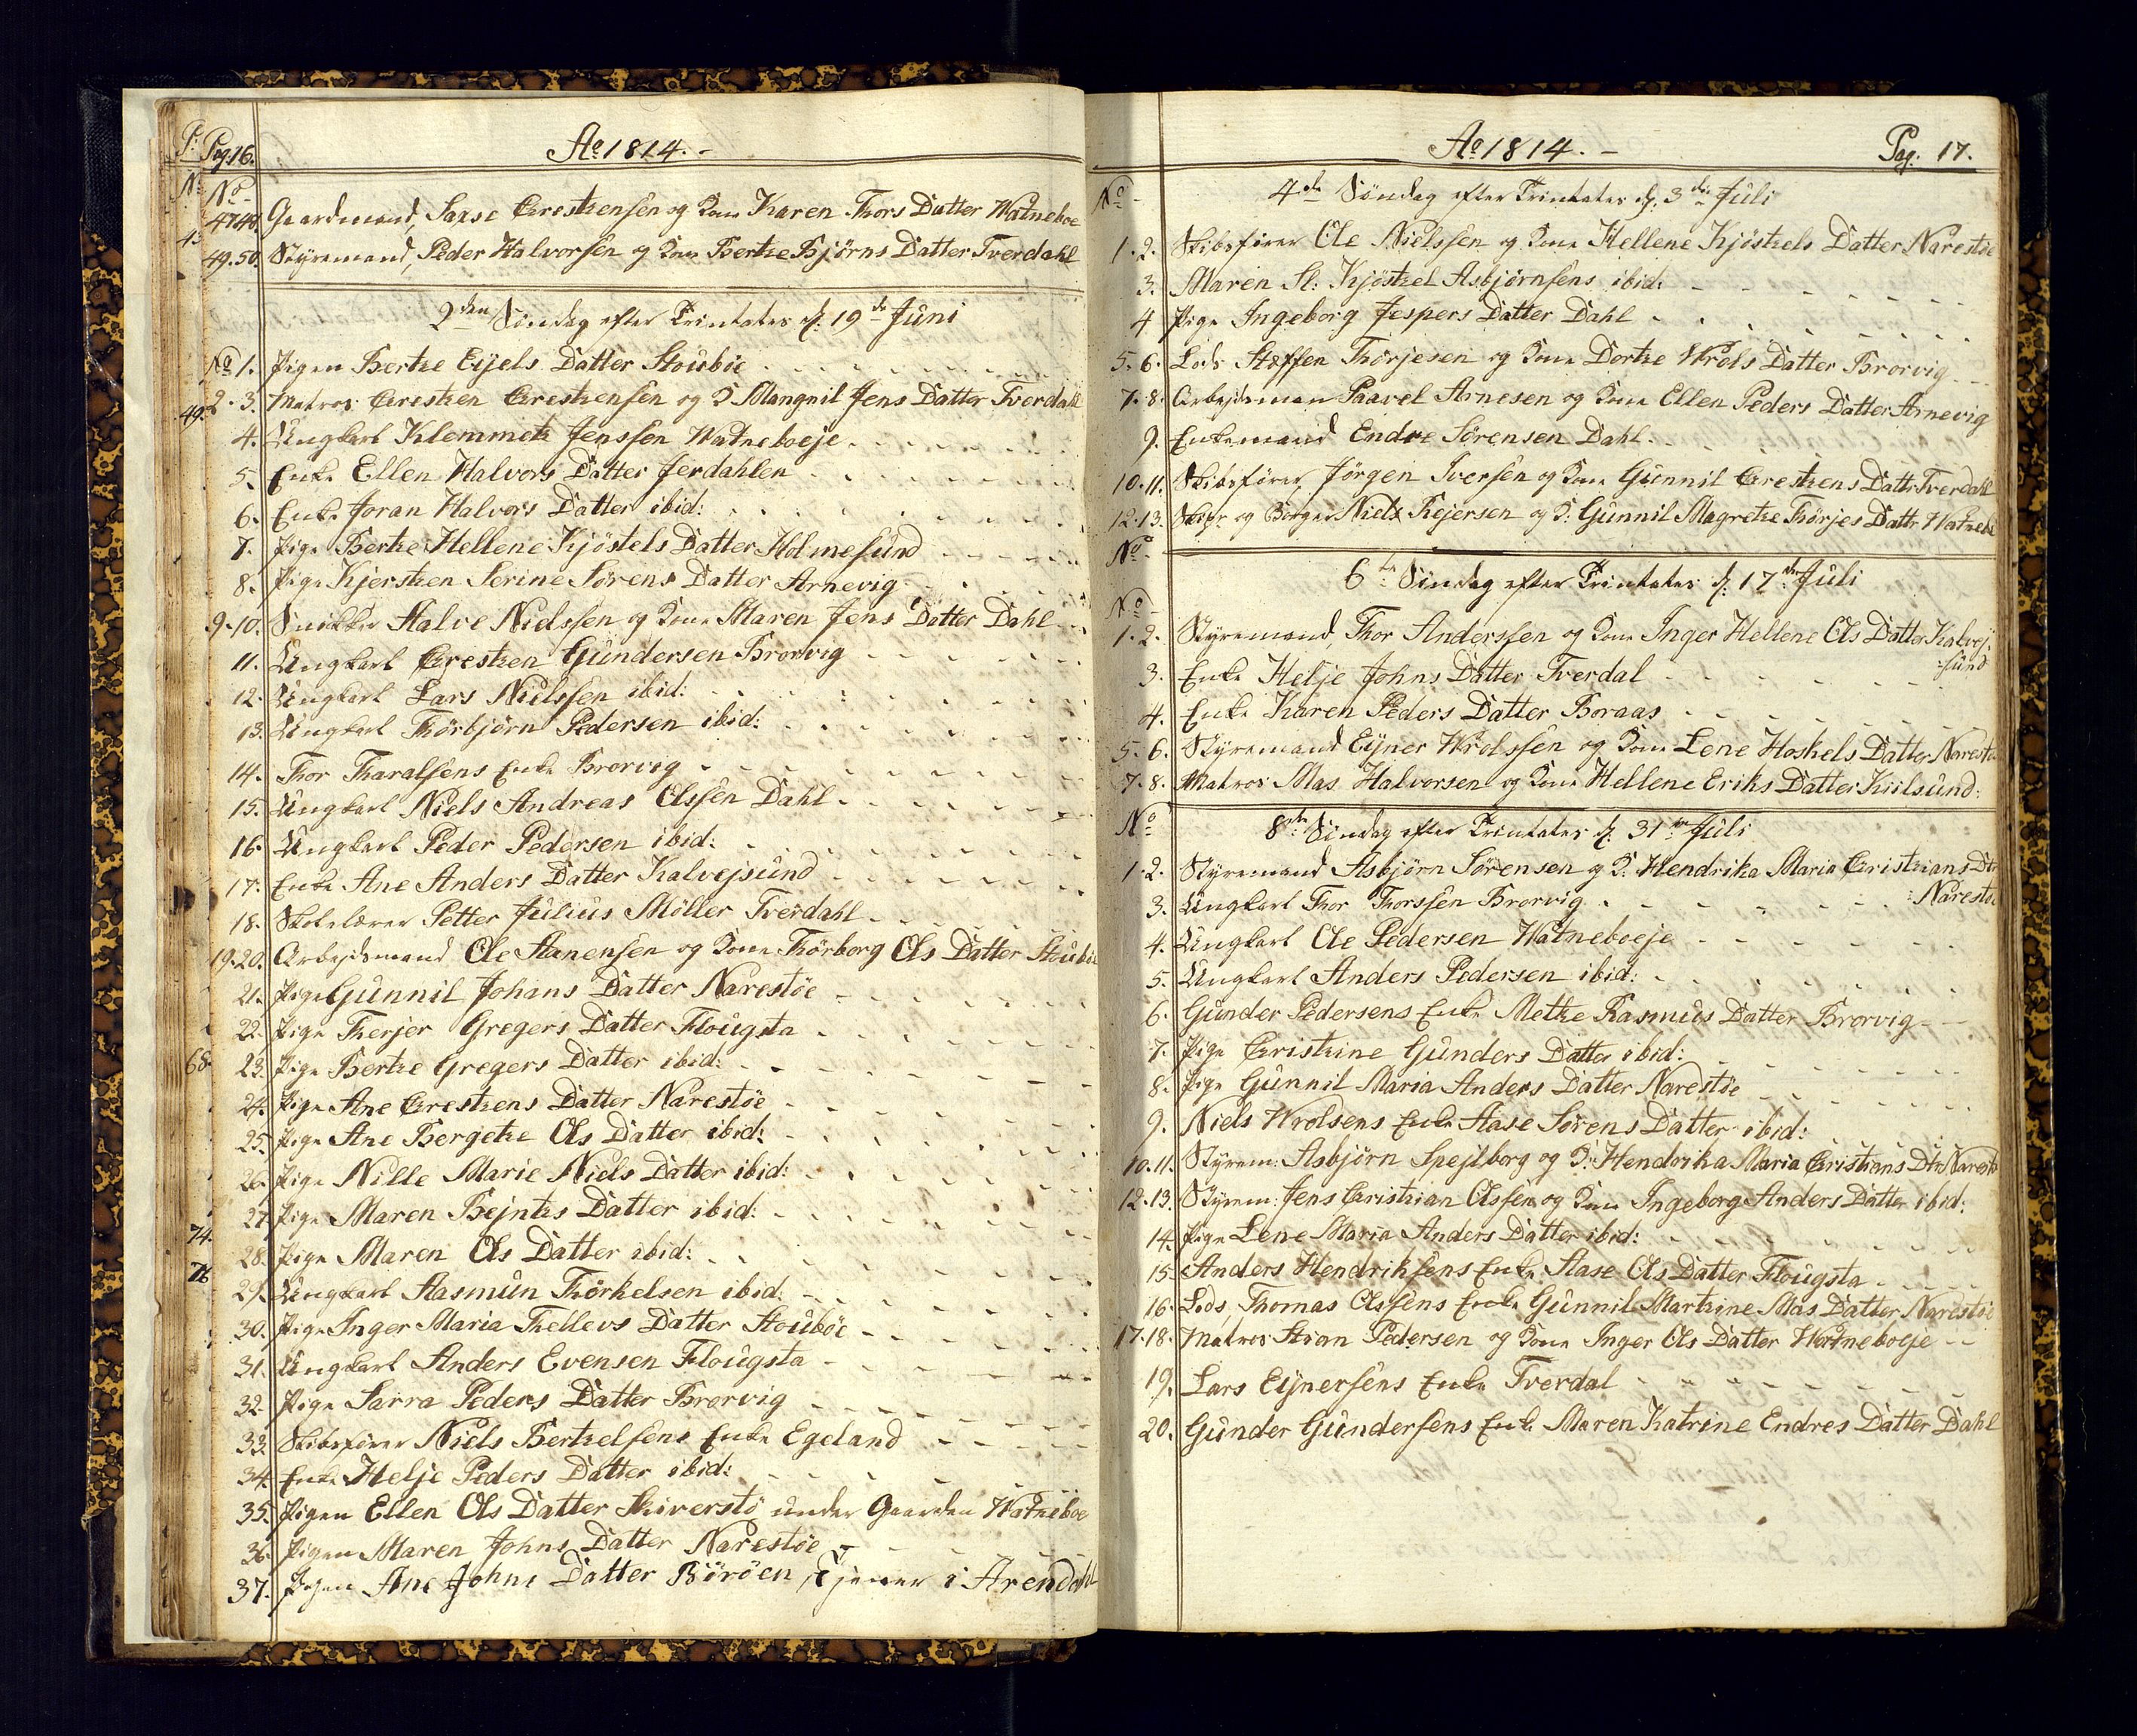 P: Pag. 16.
Ao 1814. -
No No -
47.48. Gaardmand, Saxse Crestensen og Kone Karen Thors Datter Watneboe
49.50. Styremand, Peder Halvorsen og Kone Berthe Bjørns Datter Tverdahl
2den Søndag efter Trinitates d: 19de Juni
No 1. Pigen Berthe Eijels Datter Stoubøe
49. 2. 3. Matros Cresten Crestensen og K Mangnil Jens Datter Tverdahl
4. Ungkarl Klemmeth Jenssen Watneboeje
5. Enke Ellen Halvors Datter Jerdahlen
6. Enke Joran Halvors Datter ibid:
7. Pige Berthe Hellene Kjöstels Datter Holmesund
8. Pige Kjersten Serine Sørens Datter Arnevig
9.10. Snikker Halve Nielssen og Kone Maren Jens Datter Dahl
11. Ungkarl Cresten Gundersen Brorvig
12. Ungkarl Lars Nielssen ibid:
13. Ungkarl Thorbjørn Pedersen ibid:
14. Thor Tharalsens Enke Brorvig
15. Ungkarl Niels Andreas Olssen Dahl
16. Ungkarl Peder Pedersen ibid:
17. Enke Ane Anders Datter Kalvejsund
18. Skolelærer Petter Julius Möller Tverdahl
19.20. Arbejdsmand Ole Aanensen og Kone Thorborg Ols Datter Stoubøe
21. Pige Gunnil Johans Datter Narestöe
22. Pige Therjer Gregers Datter Flougsta
68. 23. Pige Berthe Gregers Datter ibid:
24. Pige Ane Crestens Datter Narestöe
25. Pige Ane Bergethe Ols Datter ibid:
26. Pige Nille Marie Niels Datter ibid:
27. Pige Maren Bejnths Datter ibid:
74. 28. Pige Maren Ols Datter ibid:
76 29. Ungkarl Aasmun Thorkelsen ibid:
30. Pige Inger Maria Thellevs Datter Stoubøe
31. Ungkarl Anders Evensen Flougsta
32. Pige Sarra Peders Datter Brorvig
33. Skibsfører Niels Berthelsens Enke Egeland
34. Enke Helje Peders Datter ibid:
35. Pigen Ellen Ols Datter Skiverstö under Gaarden Watneboe
36. Pigen Maren Johns Datter Narestöe
37. Pigen Ane Johns Datter Böröen, Tjener i Arendahl
Ao 1814. - Pag: 17.
No - 4de Søndag efter Trinitates d: 3die Juli
1.2. Skibsfører Ole Nielssen og Kone Hellene Kjöstels Datter Narestöe
3. Maren Sl: Kjöstel Asbjørnsens ibid:
4 Pige Ingeborg Jespers Datter Dahl
5.6. Lods Steffen Thorjesen og Kone Dorthe Wrols Datter Brorvig
7.8. Arbejdsman Paavel Arnesen og Kone Ellen Peders Datter Arnevig
9. Enkemand Endre Sørensen Dahl
10.11. Skibsfører, Jørgen Iversen og Kone Gunnil Crestens Dattr Tverdahl
12.13. Skipr og Borger Niels Rejersen og K: Gunnil Magrethe Thorjes Dattr Watnebøe
No -
6te Søndag efter Trinitates d: 17de Juli
No -
1.2. Styremand, Thor Anderssen og Kone Inger Hellene Ols Datter Kalvej:
:sund
3. Enke Helje Johns Datter Tverdal
4. Enke Karen Peders Datter Boraas
5.6. Styremand Eijner Wrolssen og Kone Lene Hoskels Datter Narestöe
7.8. Matros Mas Halvorsen og Kone Hellene Eriks Datter Kiilsund:
No 8de Søndag efter Trinitates d: 31te Juli
1.2. Styremand Asbjørn Sørensen og K: Hendrika Maria Christians Dtr
:Narestöe
3. Ungkarl Thor Thorssen Brorvig
4. Ungkarl Ole Pedersen Watneboeje
5. Ungkarl Anders Pedersen ibid:
6. Gunder Pedersens Enke Methe Rasmus Datter Brorvig
7. Pige Christine Gunders Datter ibid:
8. Pige Gunnil Maria Anders Datter Narestöe
9. Niels Wrolsens Enke Aase Sørens Datter ibid:
10.11. Styrem: Asbjørn Spejlborg og K: Hendrika Maria Christians Dtr Narestö
12.13. Styrem: Jens Christian Olssen og Kone Ingeborg Anders Datter ibid:
14. Pige Lene Maria Anders Datter ibid:
15. Anders Hendriksens Enke Aase Ols Datter Flougsta
16. Lods, Thomas Olssens Enke Gunnil Marthine Mas Datter, Narestöe
17.18. Matros Stian Pedersen og Kone Inger Ols Datter Watneboeje
19. Lars Eijnersens Enke Tverdal
20. Gunder Gundersens Enke Maren Katrine Endres Datter Dahl